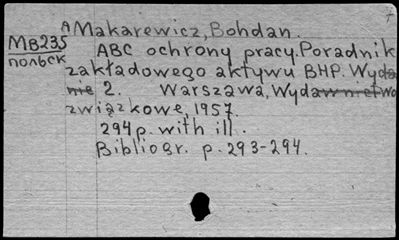 A Makarewicz, Bohdan.
MB235
польск
ABC ochrony pracy. Poradnik
zakładowego aktywu BHP. Wyda
nie 2. Warszawa, Wydawnictwo
związkowe, 1957.
294 p. with ill.
Bibliogr. p. 293-294.